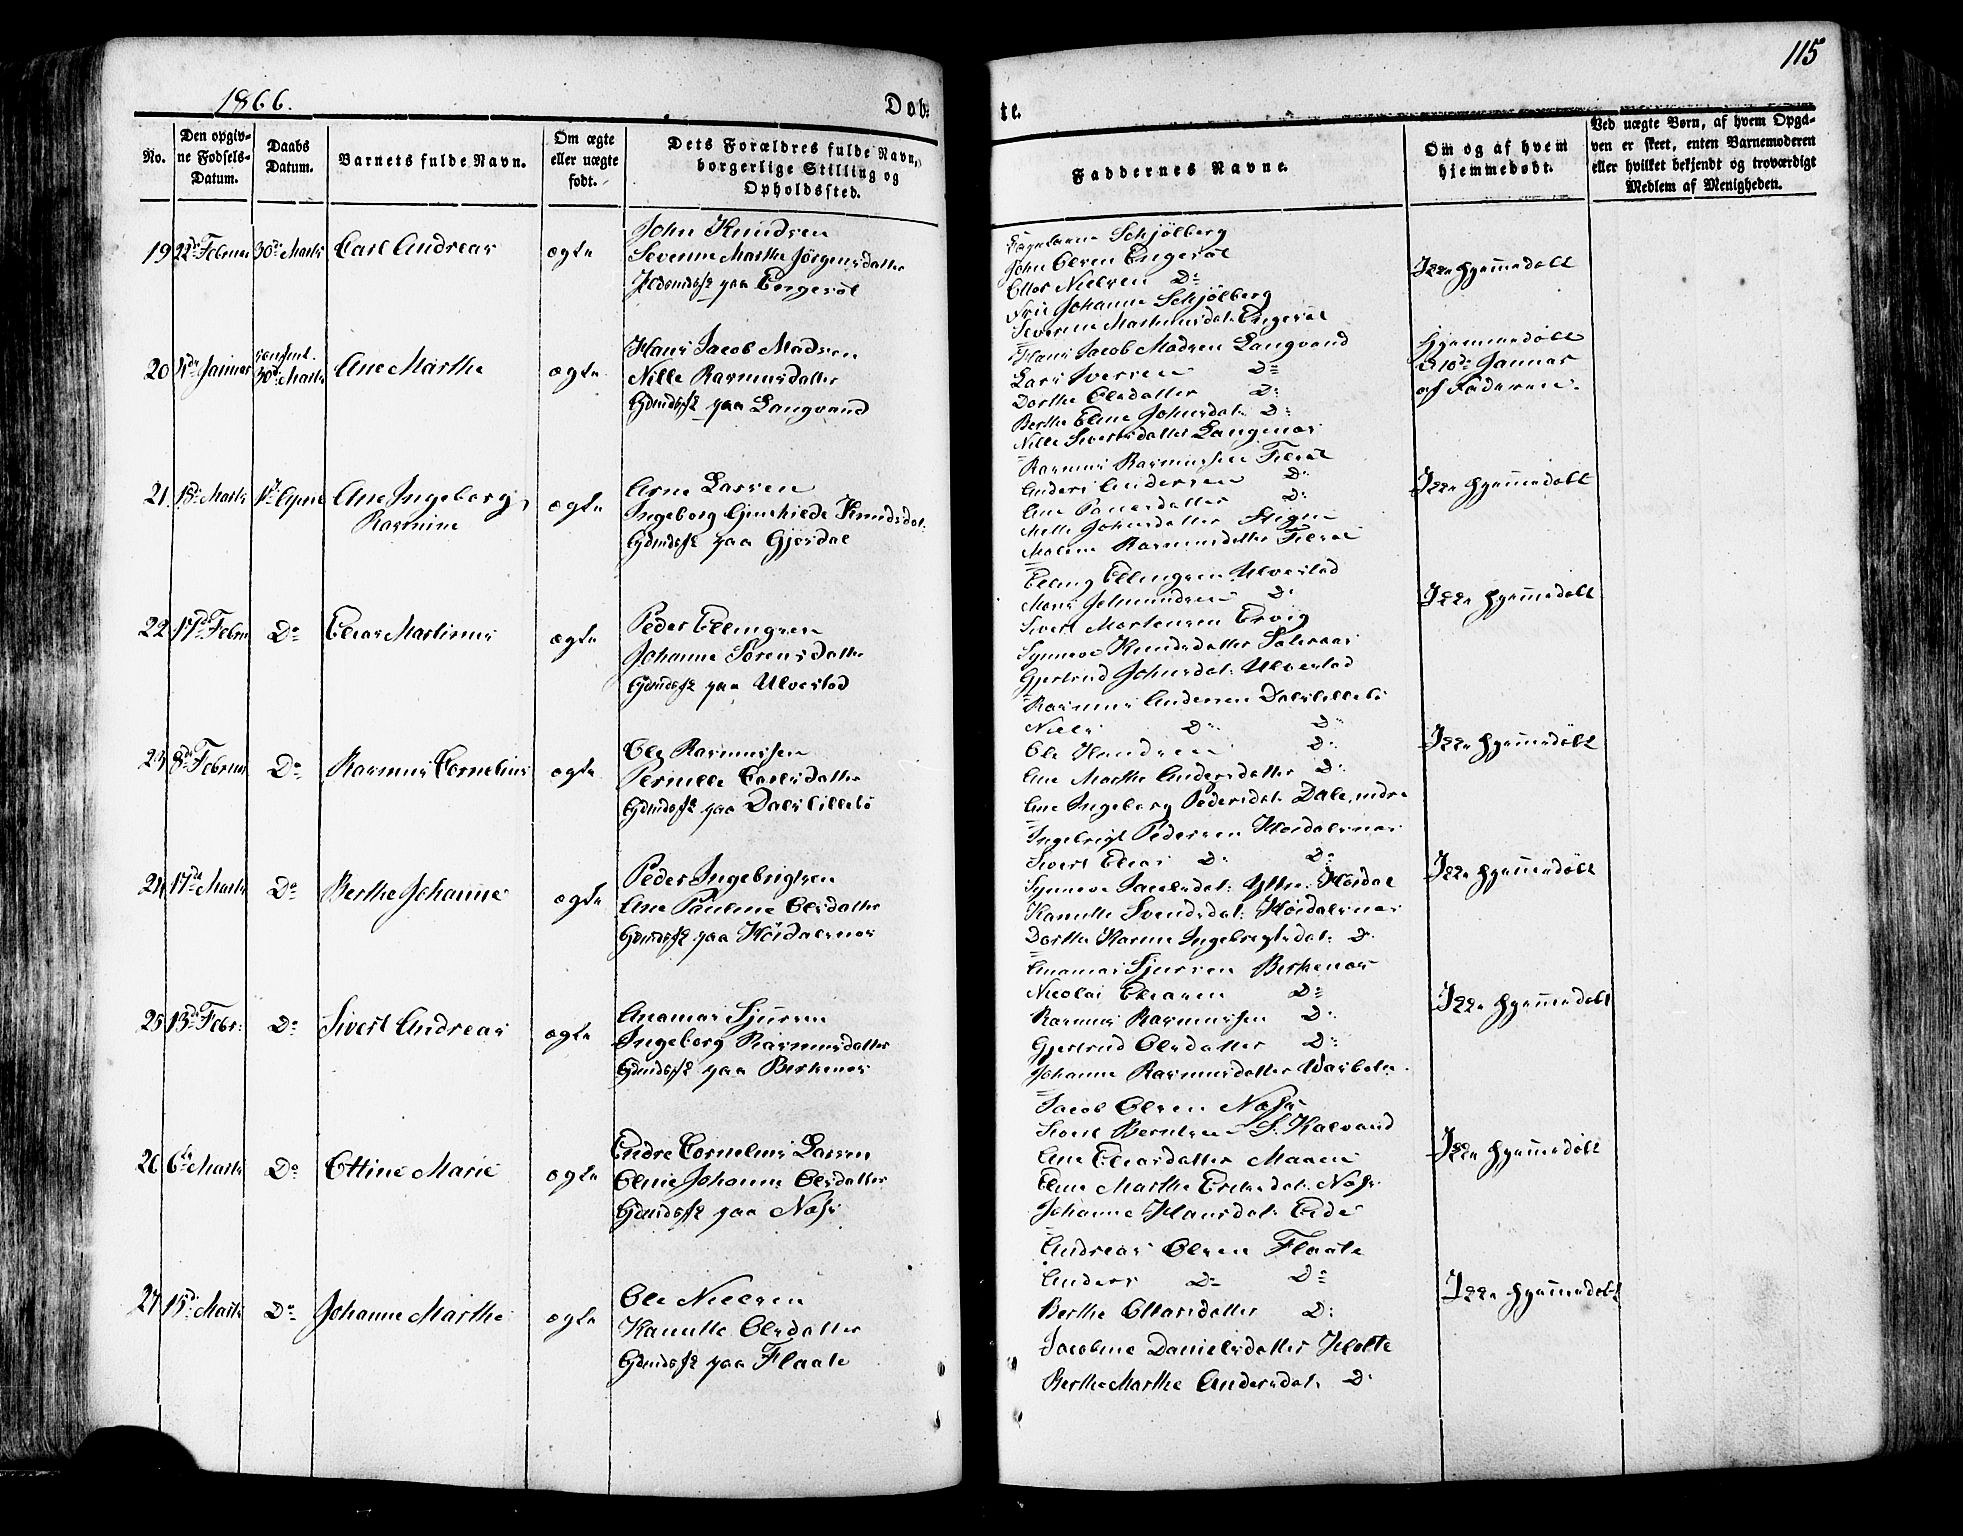 1866.
Døb-
te.
115
No.
Den opgiv-
ne Fødsels-
Datum.
Daabs
Datum.
Barnets fulde Navn.
Om ægte
eller uægte
født.
Dets Forældres fulde Navn,
borgerlige Stilling og
Opholdssted.
Faddernes Navne.
Om og af hvem
hjemmedøbt.
Ved uægte Børn, af hvem Opga-
ven er skeet, enten Barnemoderen
eller hvilket bekjendt og troværdigt
Medlem af Menigheden.
19
22de Februar
30de Marts
Carl Andreas
ægte
John Knudsen
Severine Marthe Jørgensdatter
paa Engesøt
Schjølberg
John Olsen Engesøt
Ottar Nielsen Do
Johanne Schjølberg
Severine Martinusdat: Engesøt
Ikke hjemmedøbt
20
Januar
30de Marts
Ane Marthe
ægte
Hans Jacob Madsen
Nille Rasmusdatter
Gdmdsfk paa Langvand
Hans Jacob Madsen Langvand
Lars Iversen Do
Dorthe Olsdatter Do
Berthe Eline Johnsdat: Do
Nille Sivertsdatter Langenæs
Hjemmedøbt
D 10de Januar
af Faderen.
21
13de Marts
April
Ane Ingeborg
Rasmine
ægte
Arne Larsen
Ingeborg Gunhilde Knudsdat:
Gdmdsfk paa Gjerdal
Rasmus Rasmussen
Anders Andersen Do
Ane Do
Mette Johnsdatter
Malene Rasmusdatter
Ikke hjemmedøbt
22
17de Febru
Do
Elias Martinus
ægte
Peder Ellingsen
Johanne Sørensdatter
Gdmdsfk paa Ulvestad
Elling Ellingsen Ulvestad
Mons Do
Sivert Mortensen Ervig
Synneve Knudsdatter
Gjertrud Johnsdat: Ulvestad
Ikke hjemmedøbt
23
8de Februar
Do
Rasmus Cornelius
ægte
Ole Rasmussen
Pernille Carlsdatter
Gdmdsfk paa Dalslillebø
Rasmus Andersen Dalslillebø
Niels Do Do
Ole Knudsen Do
Ane Marthe Andersdatter Do
Ane Ingeborg Pedersdat: Dale, indre
Ikke hjemmedøbt
24
17de Marts
Do
Berthe Johanne
ægte
Peder Ingebrigtsen
Ane Pauline Olsdatter
Gdmdsfk paa Høidalsnæs
Ingebrigt Pedersen Høidalsnæs
Sivert Elias Do Do
Synneve Jacobsdat: Yttre Høidal
Kanutte Svendsdat: Høidalsnæs
Dorthe Karine Ingebrigtsdat: Do
Ikke hjemmedøbt
25
13de Febr:
Do
Sivert Andreas
ægte
Anamas Sjursen
Ingeborg Rasmusdatter
Gdmdsfk paa Berkenæs
Anamas Sjursen Berkenæs
Nicolai Eliasen Do
Rasmus Rasmussen Do
Gjertrud Olsdatter Do
Johanne Rasmusdatter
Ikke hjemmedøbt
26
6te Marts
Do
Ottine Marie
ægte
Endre Cornelius Larsen
Oline Johanne Olsdatter
Gdmdsfk paa Næss
Jacob Olsen Næss
Sivert Berntsen S. Kalvand
Ane Eliasdatter Maren
Eline Marthe Eriksdat: Næss
Johanne Hansdat: Eide
Ikke hjemmedøbt
27
15de Marts
Do
Johanne Marthe
ægte
Ole Nielsen
Kanutte Olsdatter
Gdmdsfk paa Flaate
Andreas Olsen Flaate
Anders Do Do
Berthe Ottarsdatter Do
Jacobine Danielsdatter
Berthe Marthe Andersdat: Do
Ikke hjemmedøbt